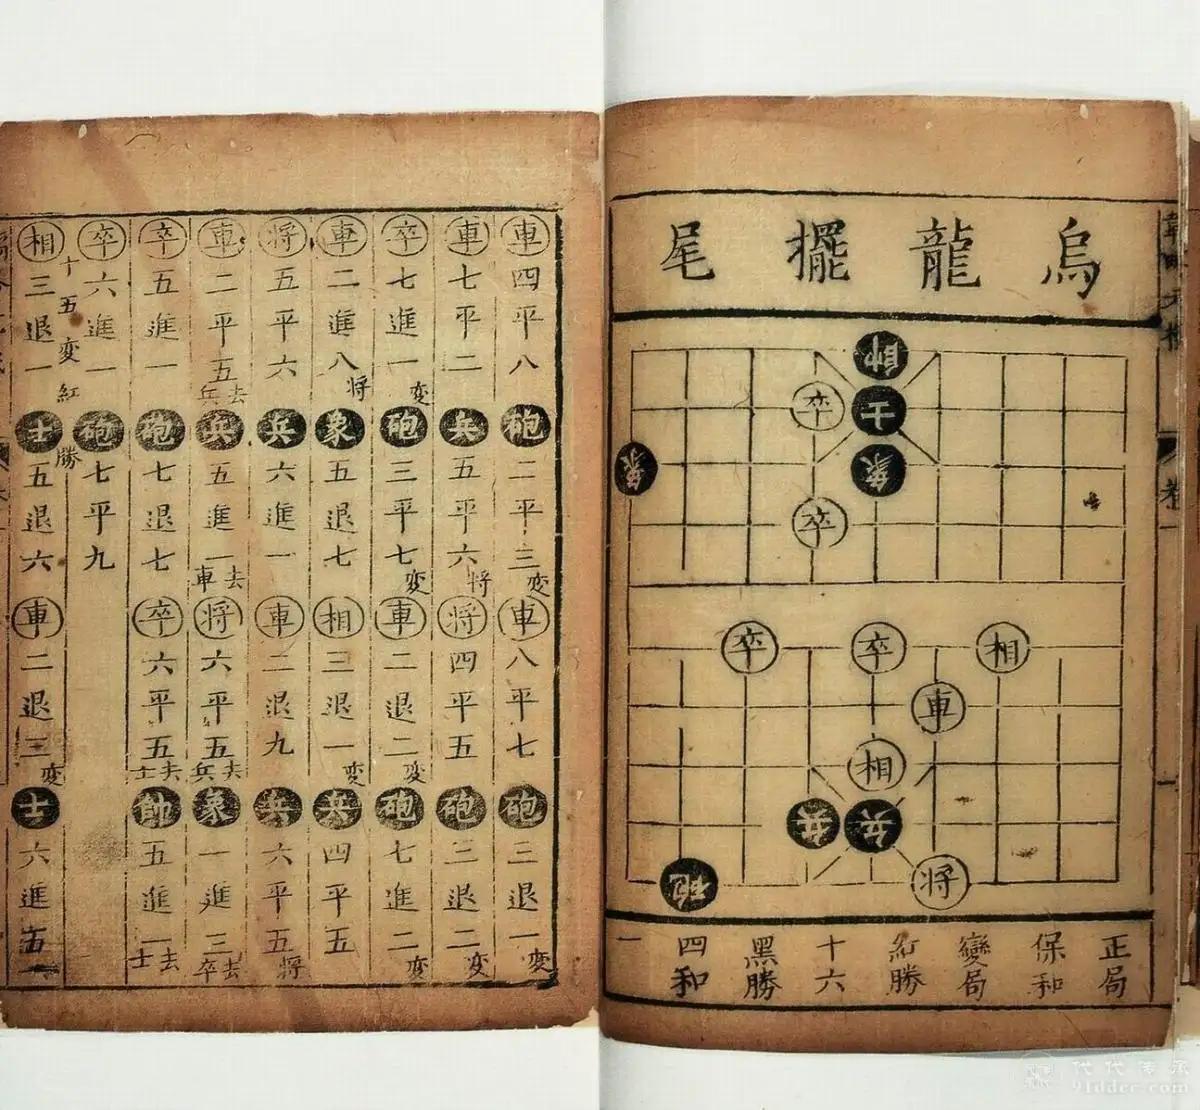 烏龍擺尾
帥
卒士
象象
卒
卒卒相
車
相
兵兵
砲將
正局
保和
變局
紅勝
十六
黑勝
四和
一
卷一
車四平八砲二平三変車八平七砲三退一変
車七平二兵五平六将将四平五砲三退二変
卒七進一変砲三平七変車二退二変砲七進二変
車二進八将象五退七相三退一変兵四平五
将五平六兵六進一車二退九兵六平五将
車二平五去兵兵五進一去車将六平五去兵象一進三去卒
卒五進一砲七退七卒六平五去士帥五進一去士
卒六進一砲七平九
十五変紅勝
相三退一士五退六車二退三変士六進五
代代传承
91ddcc.com